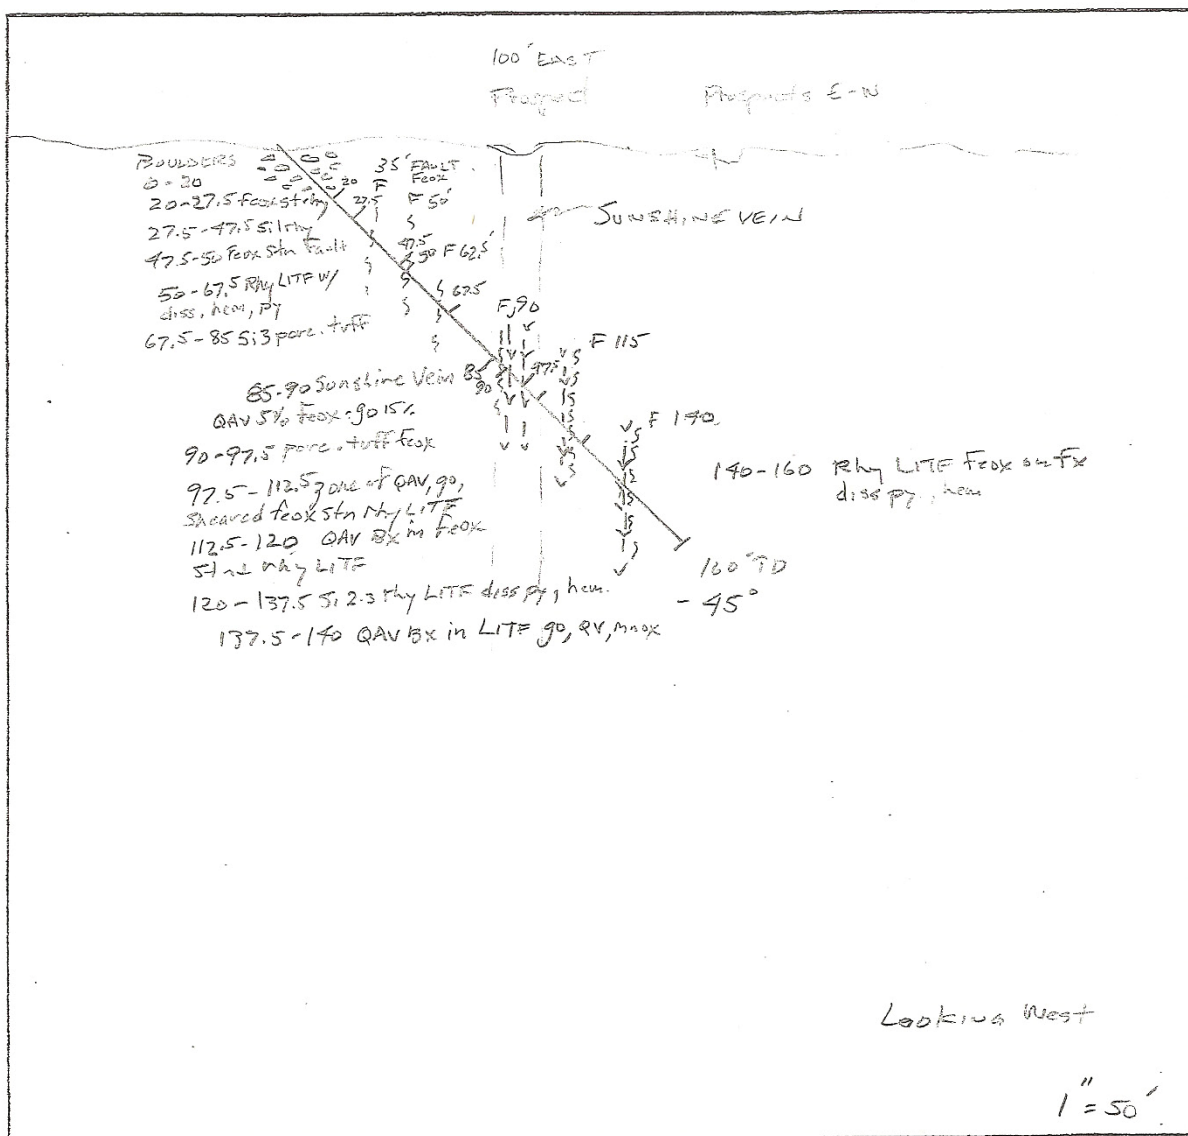 100' EAST
Prospect
Prospects E-W
BOULDERS
0-20
20-27.5 feox st rhy
27.5-47.5 Sil rhy
47.5-50 Feox Stn Fault
50-67.5 Rhy LITF w/
diss, hem, py
67.5-85 Si3 porc. tuff
85-90 Sunshine Vein
QAV 5% feox-go 15%
90-97.5 porc. tuff feox
97.5-112.5 zone of QAV, go,
Sheared feox stn rhy LITF
112.5-120 QAV Bx in Feox
Stnd rhy LITF
120-137.5 Si 2.3 rhy LITF diss py, hem.
137.5-140 QAV Bx in LITF go, QV, mnox
35' FAULT
Feox
F
20
27.5
F 50'
47.5
50
F 62.5'
67.5
SUNSHINE VEIN
F, 90
85
90
97.5
F 115
F 140
140-160 Rhy LITF Feox on Fx
diss py, hem
160' TD
-45°
Looking West
1" = 50'